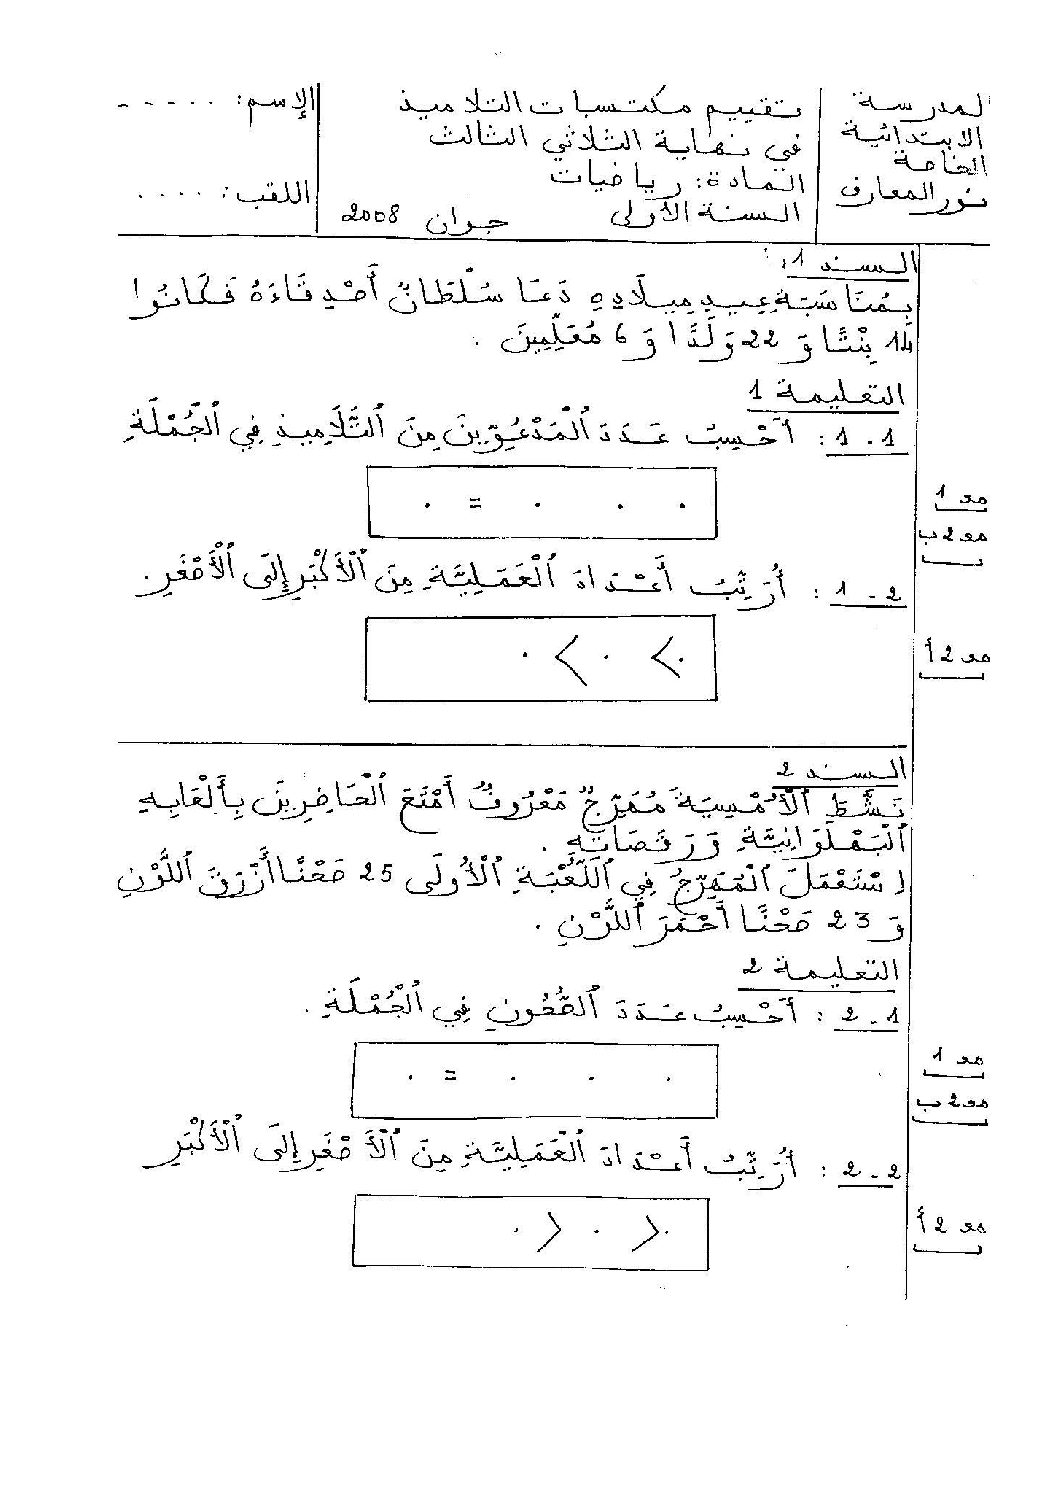 المدرسة
الابتدائية
الخاصة
نور المعارف
تقييم مكتسبات التلاميذ
في نهاية الثلاثي الثالث
المادة: رياضيات
السنة الأولى جوان 2008
الإسم: ......
اللقب: ....
السند 1:
بِمُنَاسَبَةِ عِيدِ مِيلَادِهِ دَعَا سُلْطَانٌ أَصْدِقَاءَهُ فَكَانُوا
14 بِنْتًا وَ 22 وَلَدًا وَ 6 مُعَلِّمِينَ .
التعليمة 1
1.1 : أَحْسِبُ عَدَدَ ٱلْمَدْعُوِّينَ مِنَ ٱلتَّلَامِيذِ فِي ٱلْجُمْلَةِ
. . . = .
مع 1
مع 2 ب
1.2 : أُرَتِّبُ أَعْدَادَ ٱلْعَمَلِيَّةِ مِنَ ٱلْأَكْبَرِ إِلَى ٱلْأَصْغَرِ.
. > . > .
مع 2 أ
السند 2
نَشَّطَ ٱلْأُمْسِيَةَ مُهَرِّجٌ مَعْرُوفٌ أَمْتَعَ ٱلْحَاضِرِينَ بِأَلْعَابِهِ
ٱلْبَهْلَوَانِيَّةِ وَرَقَصَاتِهِ .
اِسْتَعْمَلَ ٱلْمُهَرِّجُ فِي ٱللُّعْبَةِ ٱلْأُولَى 25 صَحْنًا أَزْرَقَ ٱللَّوْنِ
وَ 23 صَحْنًا أَحْمَرَ ٱللَّوْنِ .
التعليمة 2
2.1 : أَحْسِبُ عَدَدَ ٱلصُّحُونِ فِي ٱلْجُمْلَةِ .
. . . = .
مع 1
مع 2 ب
2.2 : أُرَتِّبُ أَعْدَادَ ٱلْعَمَلِيَّةِ مِنَ ٱلْأَصْغَرِ إِلَى ٱلْأَكْبَرِ
. < . < .
مع 2 أ